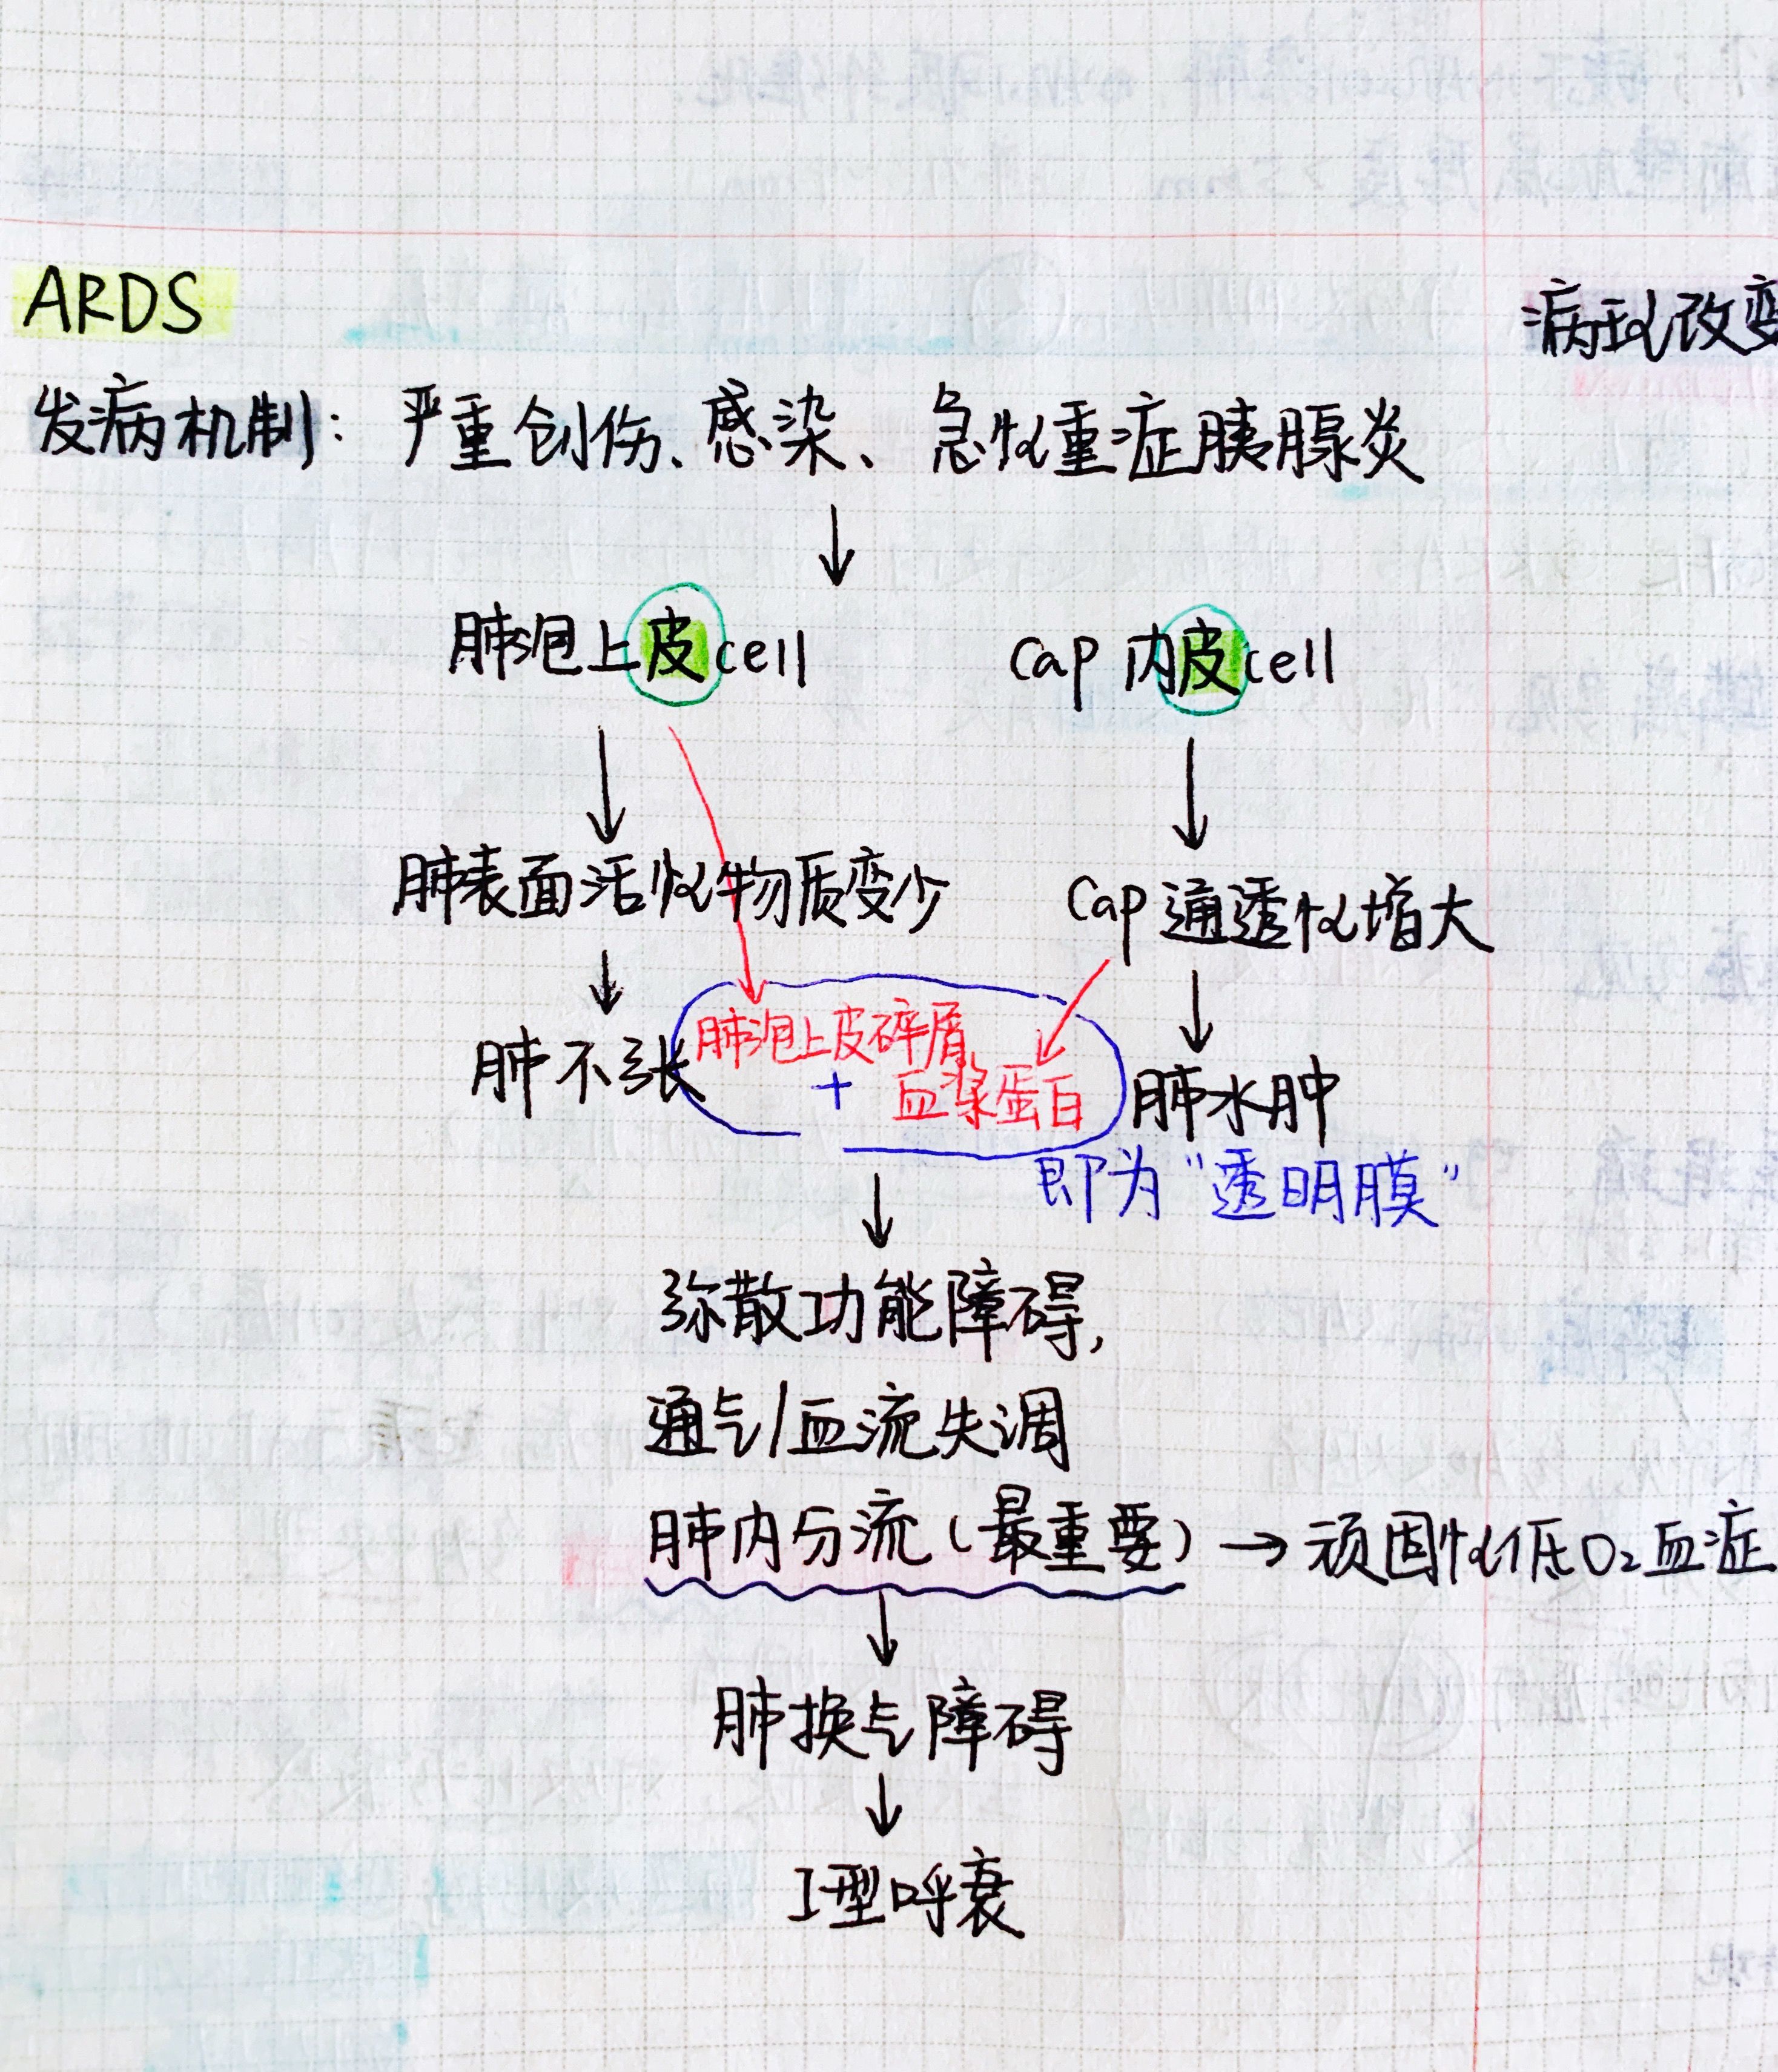 ARDS
病理改变
发病机制：严重创伤、感染、急性重症胰腺炎
↓
肺泡上皮cell
cap 内皮cell
肺表面活性物质变少
cap 通透性增大
肺不张
肺泡上皮碎屑
+ 血浆蛋白
肺水肿
即为“透明膜”
弥散功能障碍，
通气/血流失调
肺内分流（最重要）→顽固性低O₂血症
肺换气障碍
I型呼衰